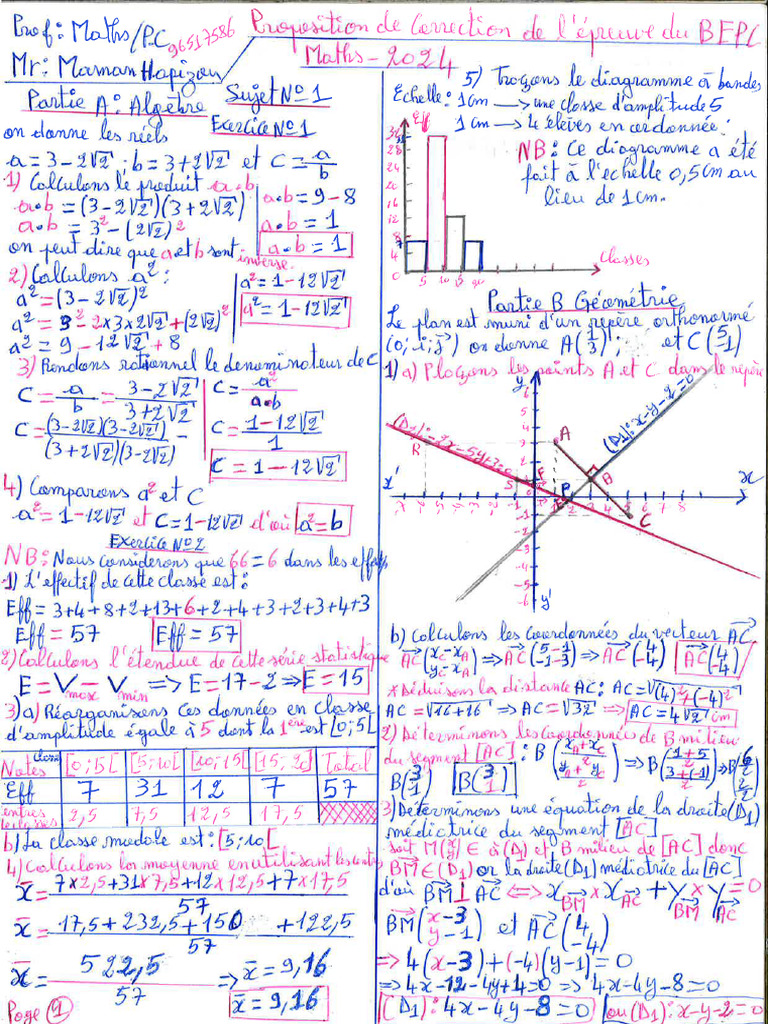 Prof: Maths/PC 96517586
Mr: Maman Hapizou
Proposition de Correction de l'épreuve du BEPC
Maths - 2024
Partie A: Algebre
Sujet N°1
Exercice N°1
on donne les réels
a = 3 - 2√2 ; b = 3 + 2√2 et C = a/b
1) Calculons le produit a.b
a.b = (3 - 2√2)(3 + 2√2)
a.b = 3² - (2√2)²
a.b = 9 - 8
a.b = 1
a.b = 1
on peut dire que a et b sont inverse.
2) Calculons a²:
a² = (3 - 2√2)²
a² = 3² - 2×3×2√2 + (2√2)²
a² = 9 - 12√2 + 8
a² = 1 - 12√2
a² = 1 - 12√2
3) Rendons rationnel le denominateur de C
C = a/b = (3 - 2√2)/(3 + 2√2)
C = (3-2√2)(3-2√2)/(3+2√2)(3-2√2) =
C = a²/a.b
C = (1 - 12√2)/1
C = 1 - 12√2
4) Comparons a² et C
a² = 1 - 12√2 et C = 1 - 12√2 d'où a² = b
Exercice N°2
NB: Nous considerons que 66 = 6 dans les effectifs
1) L'effectif de cette classe est:
Eff = 3+4+8+2+13+6+2+4+3+2+3+4+3
Eff = 57 Eff = 57
2) Calculons l'étendue de cette série statistique
E = Vmax - Vmin => E = 17 - 2 => E = 15
3) a) Réorganisons ces données en classe
d'amplitude égale à 5 dont la 1ère est [0;5[
Notes Classes [0;5[ [5;10[ [10;15[ [15;20[ Total
Eff 7 31 12 7 57
centres 2,5 7,5 12,5 17,5
b) La classe modale est: [5;10[
4) Calculons la moyenne en utilisant les centres
x̄ = (7×2,5+31×7,5+12×12,5+7×17,5)/57
x̄ = (17,5+232,5+150 +122,5)/57
x̄ = 522,5/57 => x̄ = 9,16
x̄ = 9,16
Page 1
5) Traçons le diagramme à bandes
Echelle: 1cm → une classe d'amplitude 5
1cm → 4 élèves en ordonnée:
NB: Ce diagramme a été
fait à l'echelle 0,5cm au
lieu de 1cm.
Eff
28
20
16
12
8
7
4
0
5 10 15 20
classes
Partie B Géométrie
Le plan est muni d'un repère orthonormé
(o; i; j) on donne A(1 3); et C(5 -1)
1) a) Plaçons les points A et C dans le repère
(D1): x-y-2=0
y
x' x
y'
A
R
B
C
E
P
1 2 3 4 5 6 7 8
b) Calculons les coordonnées du vecteur AC
AC(xC-xA yC-yA) => AC(5-1 -1-3) => AC(4 -4) AC(4 -4)
* Déduisons la distance AC: AC = √(4)²+(-4)²
AC = √16+16 => AC = √32 => AC = 4√2 cm
2) Déterminons les Coordonnées de B milieu
du segment [AC]: B((xA+xC)/2 (yA+yC)/2) => B((1+5)/2 (3+(-1))/2) => B(6/2 2/2)
B(3 1) B(3 1)
3) Déterminons une équation de la droite (D1)
médiatrice du segment [AC]
soit M(x y) ∈ à (D1) et B milieu de [AC] donc
BM ∈ (D1) or la droite (D1) médiatrice du [AC]
d'où BM ⊥ AC <=> xBM × xAC + yBM × yAC = 0
BM(x-3 y-1) et AC(4 -4)
=> 4(x-3) + (-4)(y-1) = 0
=> 4x-12-4y+4=0 => 4x-4y-8=0
(D1): 4x-4y-8=0 ou (D1): x-y-2=0